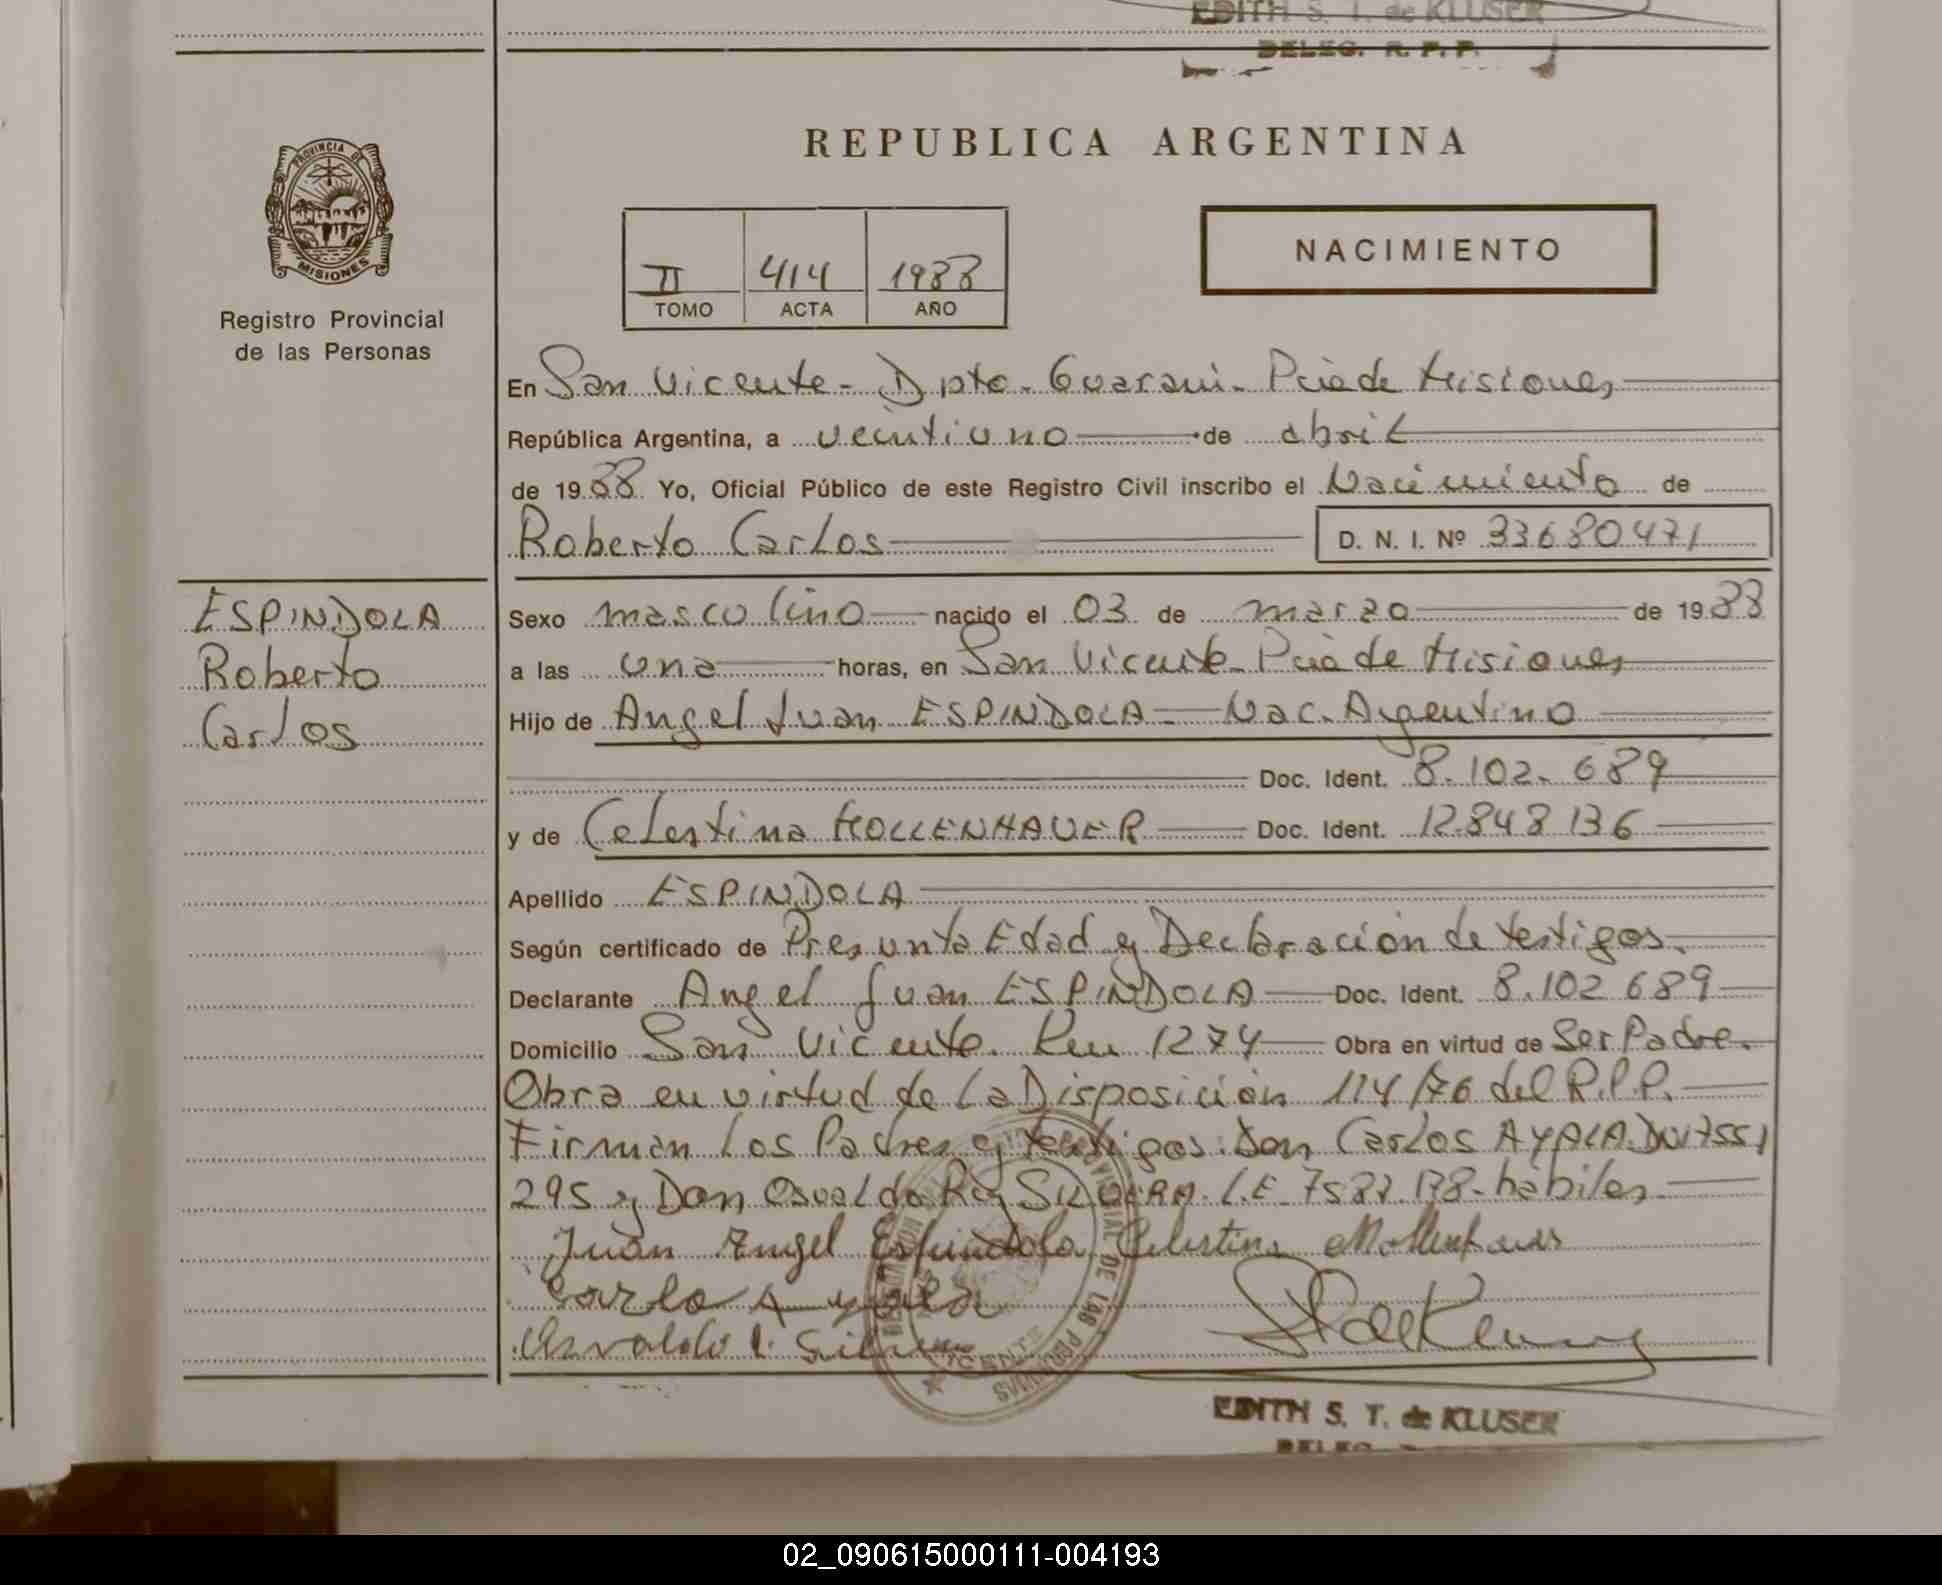 EDITH S. T. de KLUSER
DELEG. R. P. P.
PROVINCIA DE
MISIONES
Registro Provincial
de las Personas
REPUBLICA ARGENTINA
II 414 1988
TOMO ACTA AÑO
NACIMIENTO
En San Vicente - Dpto. Guarani - Pcia de Misiones
República Argentina, a veintiuno de abril
de 1988 Yo, Oficial Público de este Registro Civil inscribo el Nacimiento de
Roberto Carlos D. N. I. Nº 33680471
ESPINDOLA
Roberto
Carlos
Sexo masculino nacido el 03 de marzo de 1988
a las una horas, en San Vicente - Pcia de Misiones
Hijo de Angel Juan ESPINDOLA - Nac. Argentino
Doc. Ident. 8.102.689
y de Celestina MOLLENHAUER Doc. Ident. 12.848136
Apellido ESPINDOLA
Según certificado de Presunta Edad y Declaración de testigos.
Declarante Angel Juan ESPINDOLA Doc. Ident. 8.102689
Domicilio San Vicente. Km 1274 Obra en virtud de Ser Padre.
Obra en virtud de la Disposición 114/76 del R.P.P.
Firman los Padres y testigos: Don Carlos AYALA. DNI 7551
295 y Don Osvaldo SILVERA. L.E 7587.178- hábiles
Juan Angel Espindola Celestina Mollenhauer
Carlo Ayala
Osvaldo
PROVINCIAL DE LAS PERSONAS
EDITH S. T. de KLUSER
02_090615000111-004193